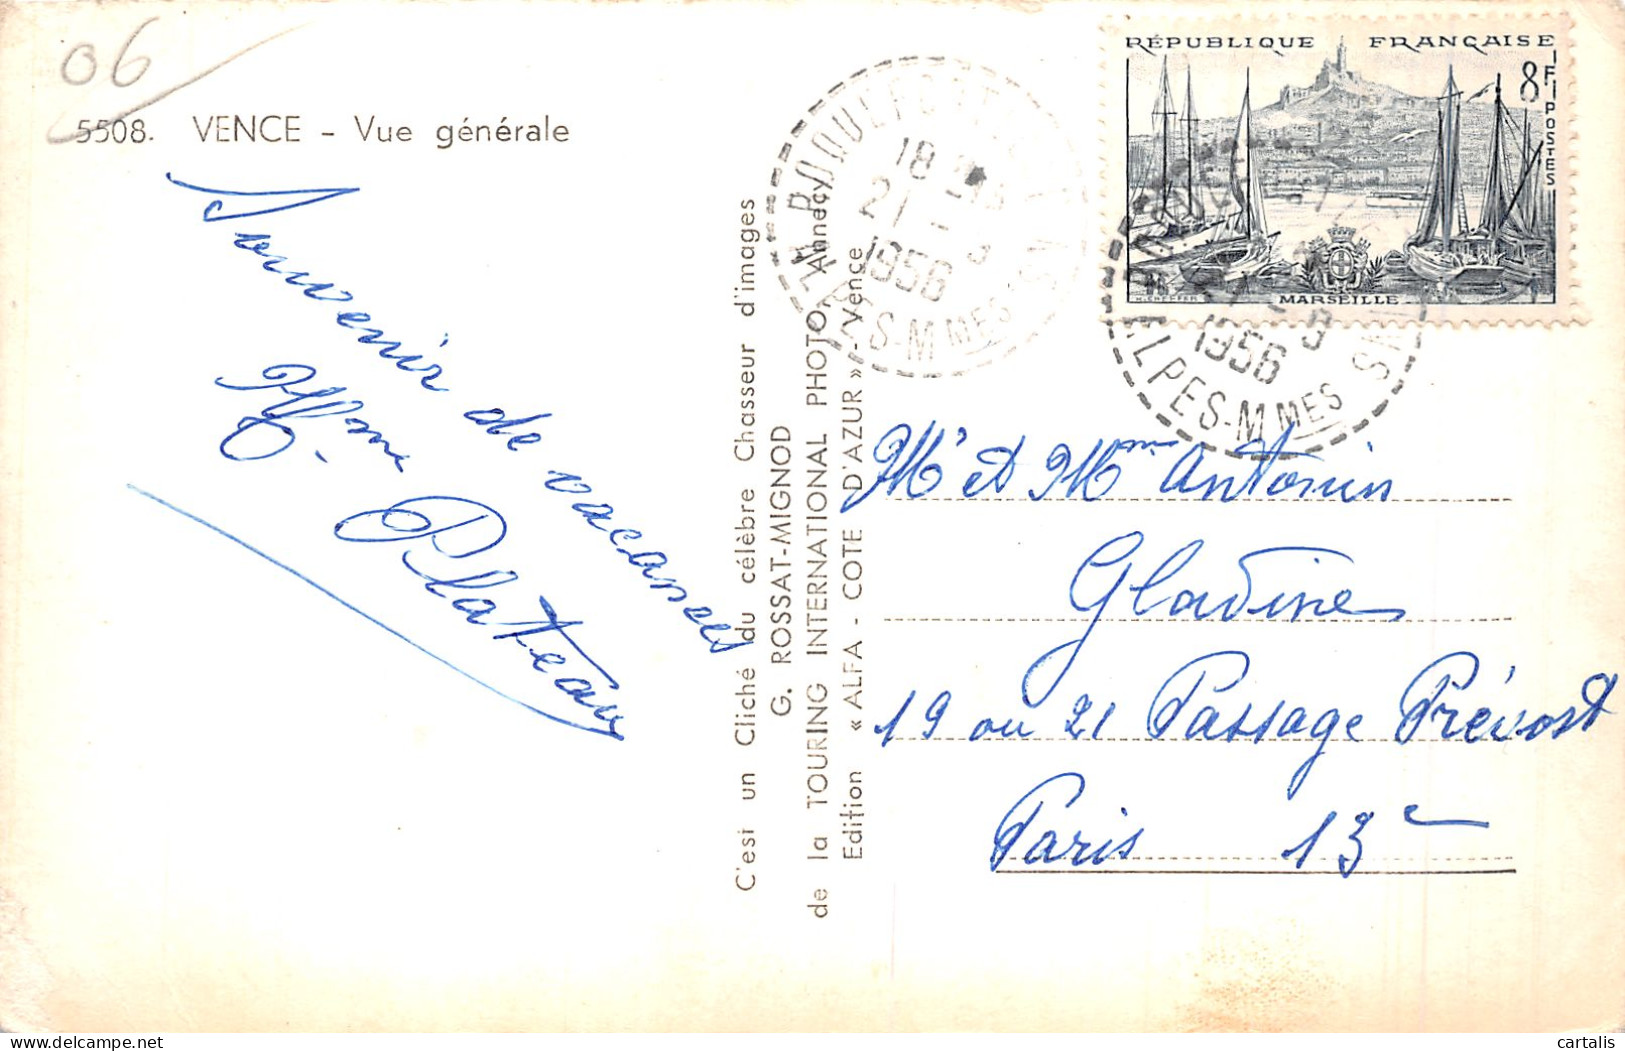 06
5508. VENCE - Vue générale
Souvenir de vacances
Mme Plateau
C'est un Cliché du célèbre Chasseur d'images
G. ROSSAT-MIGNOD
de la TOURING INTERNATIONAL PHOTO, Annecy
Edition « ALFA - COTE D'AZUR » - Vence
RÉPUBLIQUE FRANÇAISE
8F
POSTES
MARSEILLE
18
21 - 9
1956
ALPES-MMES
1956
ALPES-MMES
Mr et Mme Antonin
Gladine
19 ou 21 Passage Prévost
Paris 13e
cartalis